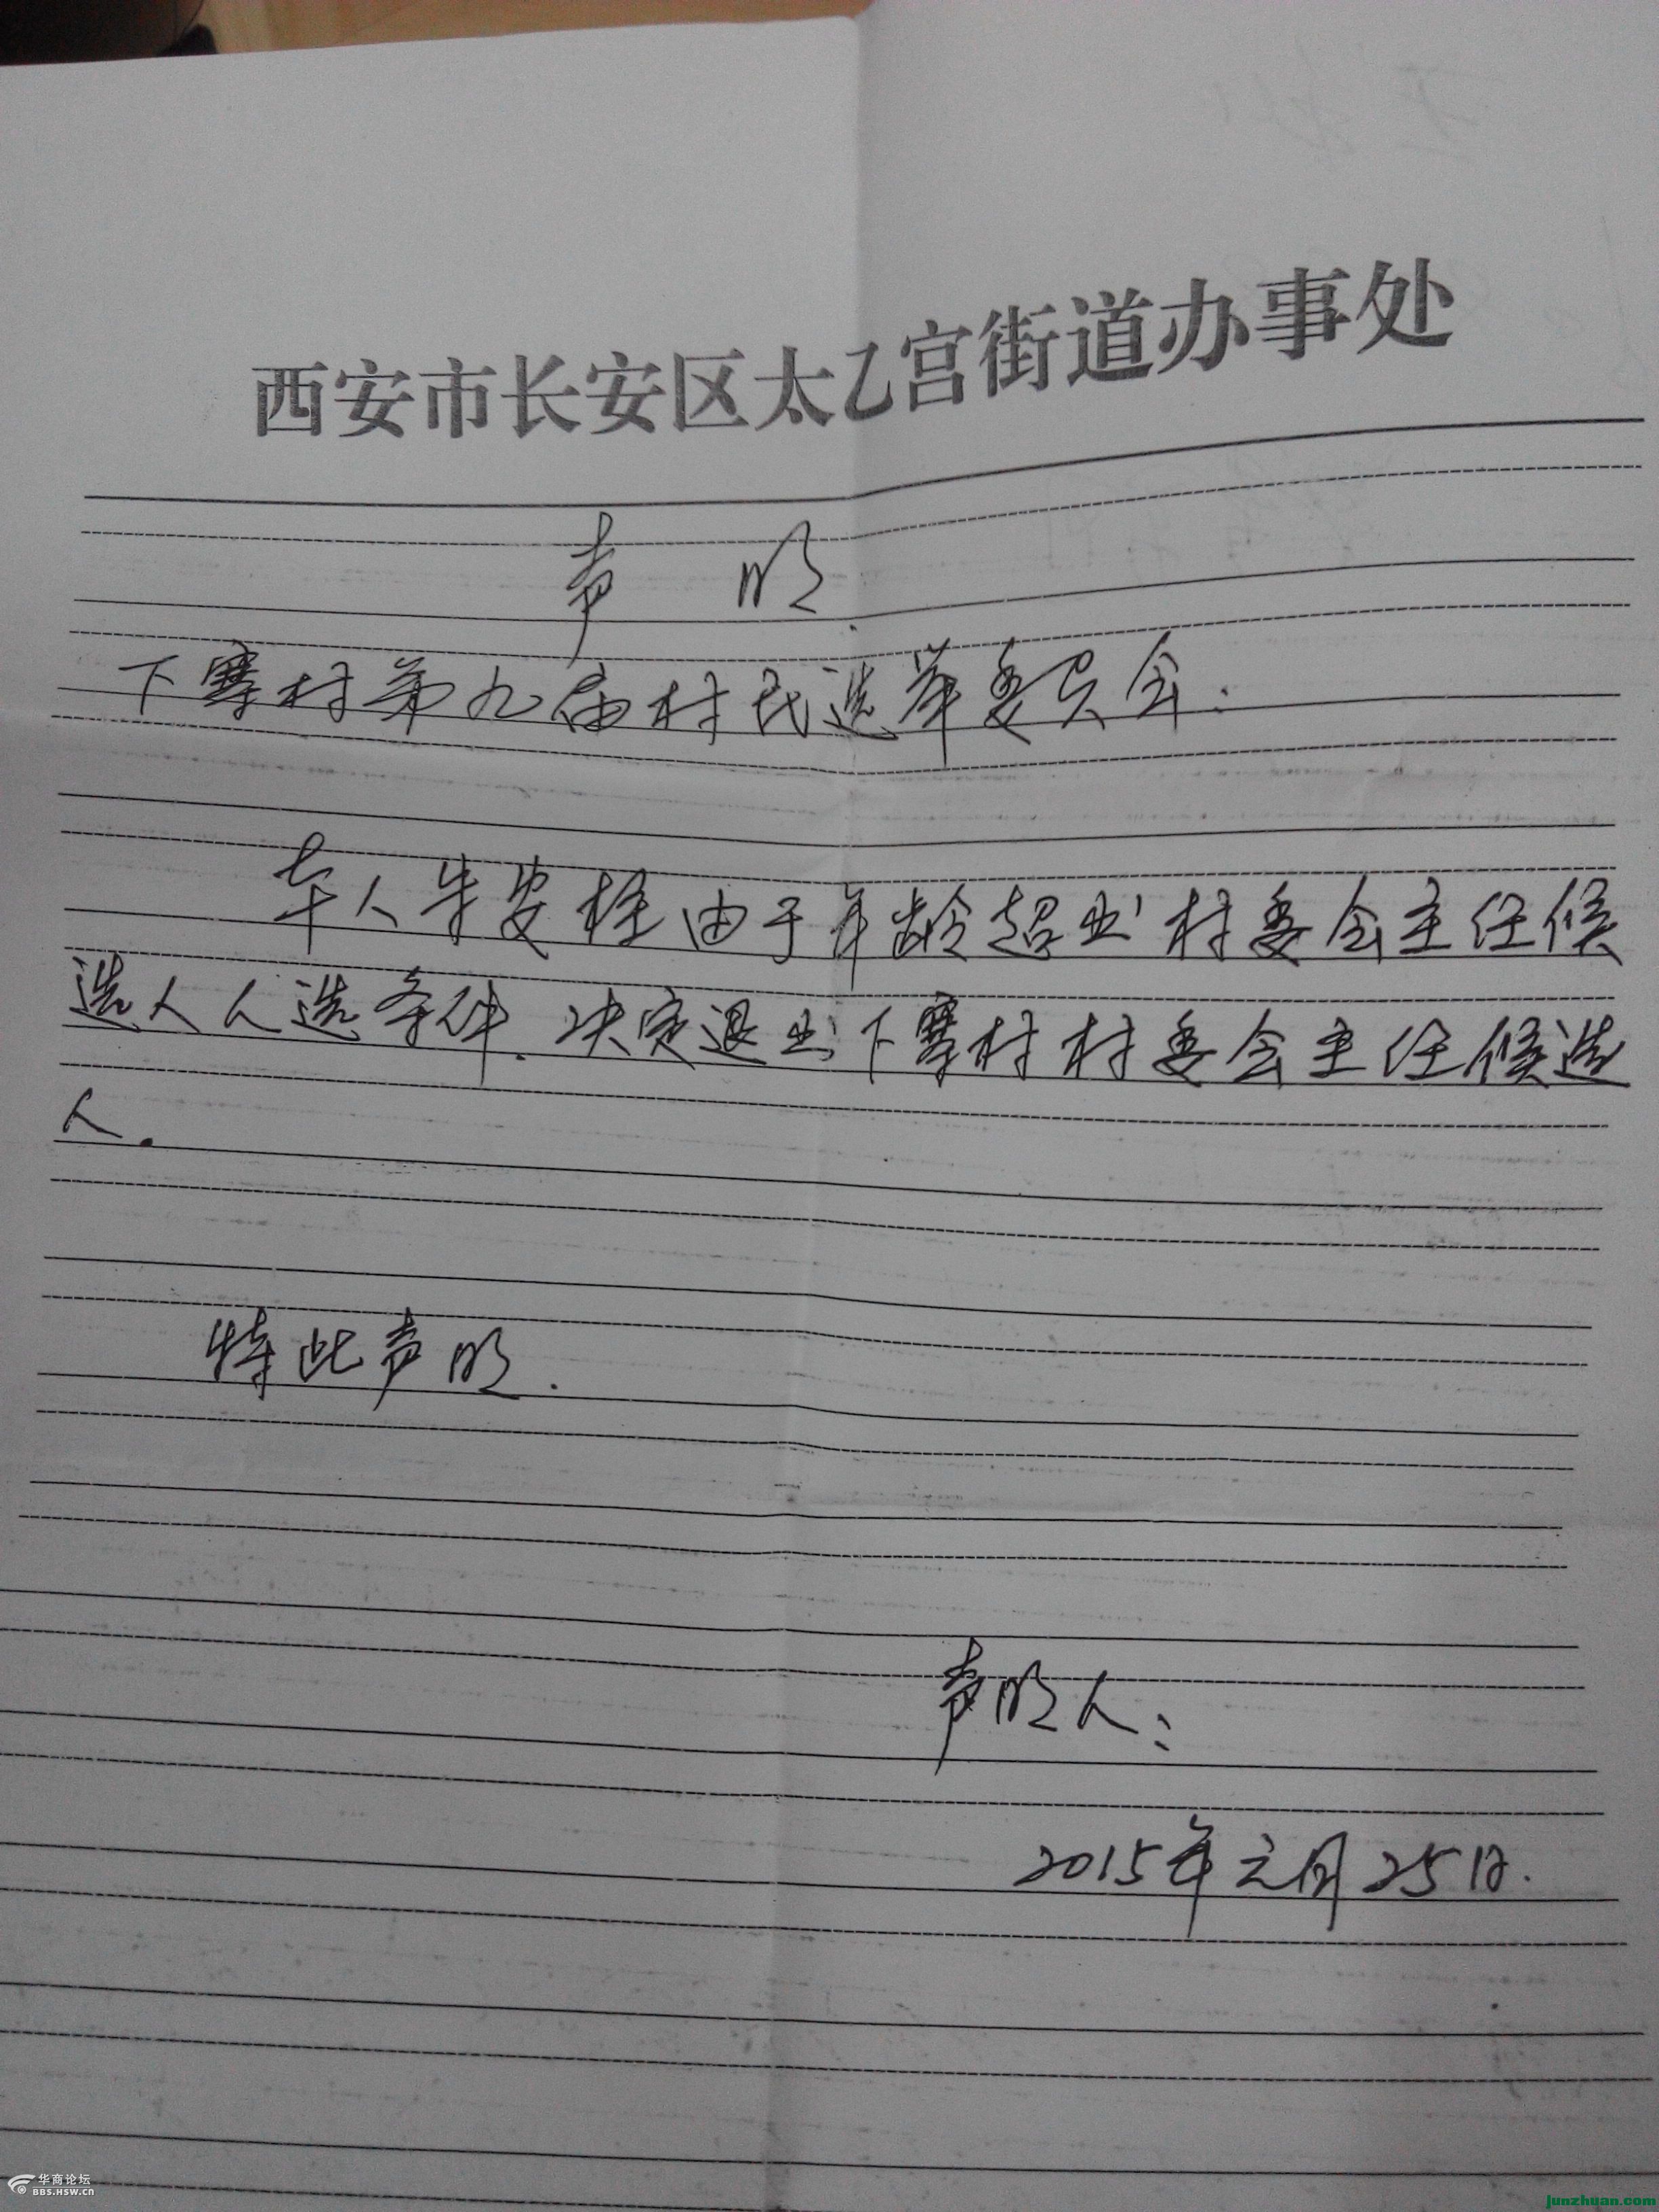 西安市长安区太乙宫街道办事处
声 明
下寨村第九届村民选举委员会:
本人牛安柱由于年龄超出村委会主任候
选人人选条件.决定退出下寨村村委会主任候选
人.
特此声明.
声明人:
2015年元月25日.
华商论坛
BBS.HSW.CN
junzhuan.com